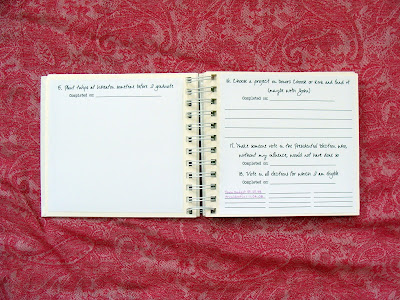 15. Plant tulips at Wheaton sometime before I graduate
Completed on:
16. Choose a project in Donors Choose or Kiva and fund it
(maybe with John)
Completed on:
17. Make someone vote in the Presidential Election who,
without my influence, would not have done so
Completed on:
18. Vote in all elections for which I am eligible
Completed on: